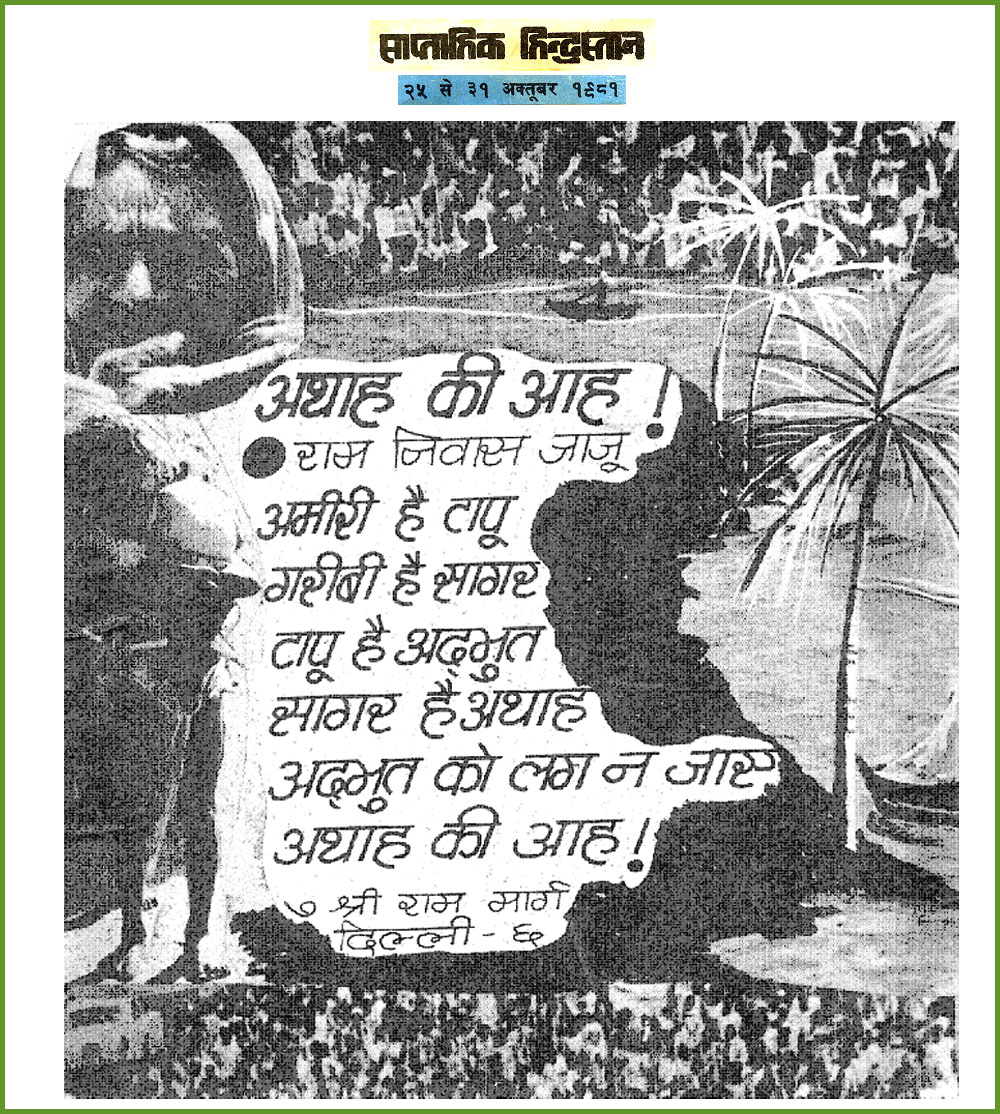 साप्ताहिक हिन्दुस्तान
२५ से ३१ अक्तूबर १९८१
अथाह की आह !
राम निवास जाजू
अमीरी है टापू
गरीबी है सागर
टापू है अद्भुत
सागर है अथाह
अद्भुत को लग न जाए
अथाह की आह !
७ श्री राम मार्ग
दिल्ली - ६